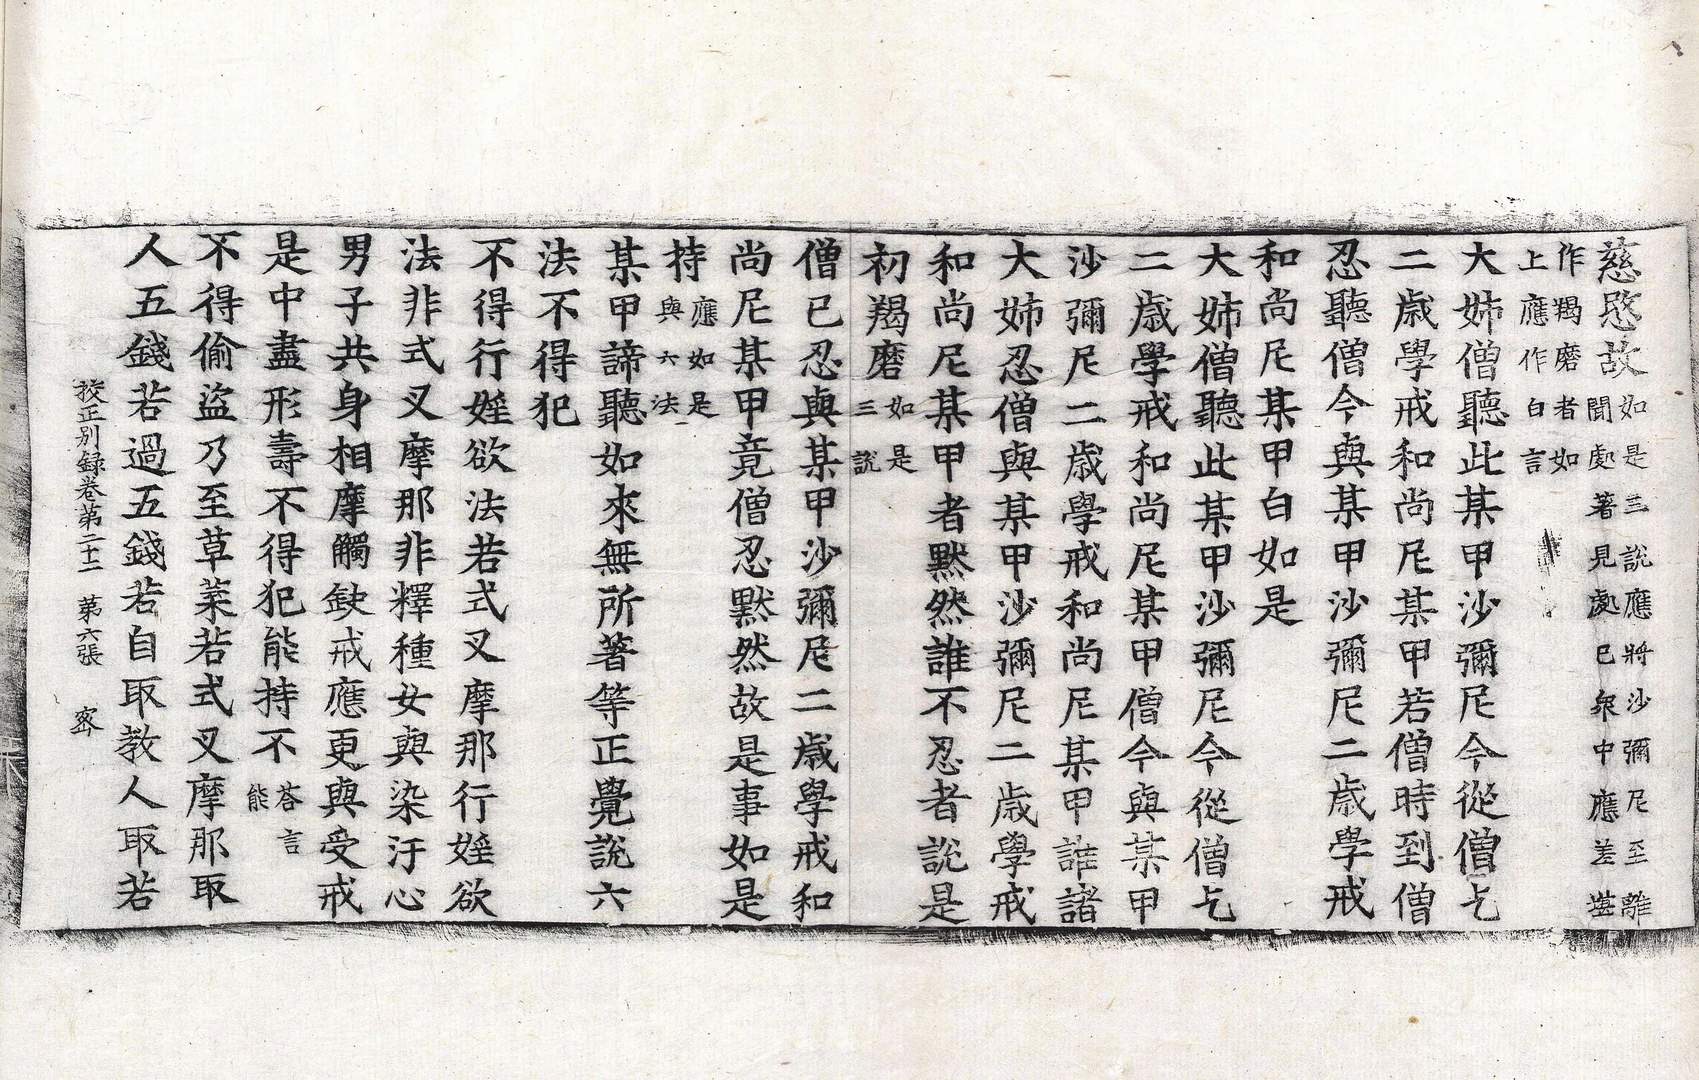 慈愍故如是三說應將沙彌尼至離聞處著見處已衆中應差堪
作羯磨者如上應作白言
大姊僧聽此某甲沙彌尼今從僧乞
二歲學戒和尚尼某甲若僧時到僧
忍聽僧今與某甲沙彌尼二歲學戒
和尚尼某甲白如是
大姊僧聽此某甲沙彌尼今從僧乞
二歲學戒和尚尼某甲僧今與某甲
沙彌尼二歲學戒和尚尼某甲誰諸
大姊忍僧與某甲沙彌尼二歲學戒
和尚尼某甲者默然誰不忍者說是
初羯磨如是三說
僧已忍與某甲沙彌尼二歲學戒和
尚尼某甲竟僧忍默然故是事如是
持應如是與六法
某甲諦聽如來無所著等正覺說六
法不得犯
不得行婬欲法若式叉摩那行婬欲
法非式叉摩那非釋種女與染汙心
男子共身相摩觸缺戒應更與受戒
是中盡形壽不得犯能持不答言能
不得偷盜乃至草葉若式叉摩那取
人五錢若過五錢若自取教人取若
挍正別録卷第二十一 第六張 宻